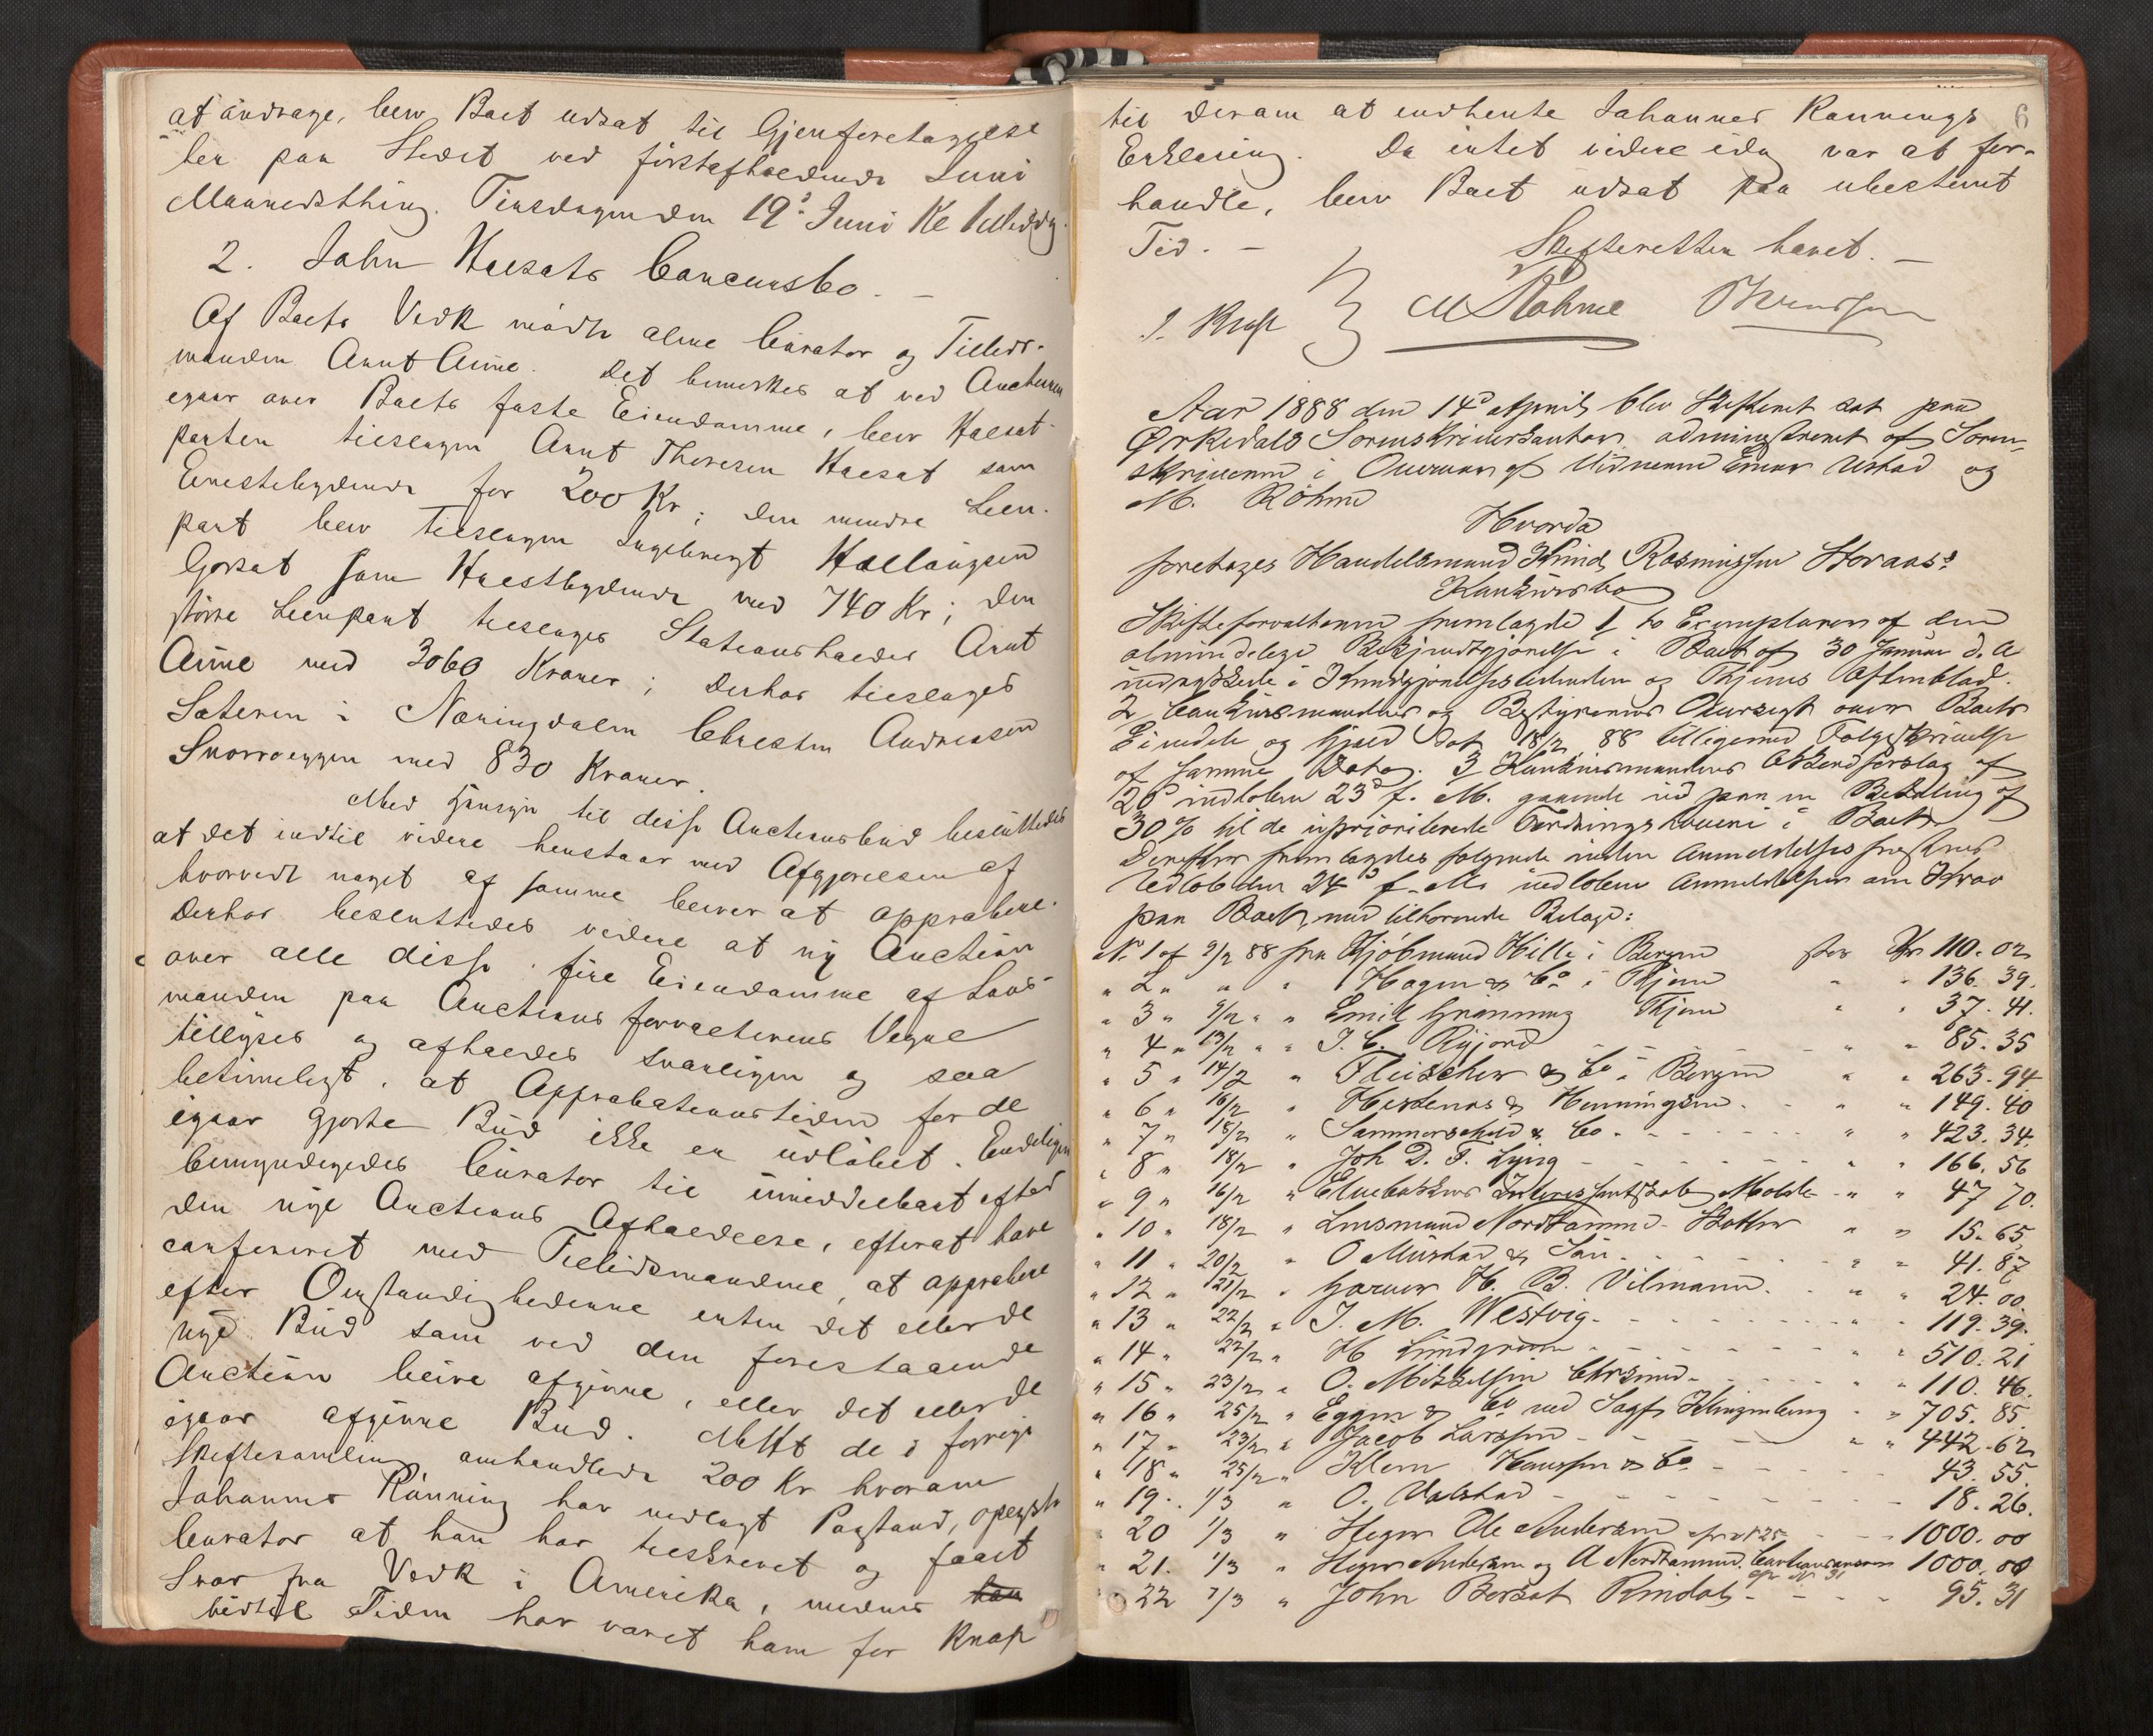 at andrage, blev Boet udsat til Gjenforetagelse
her paa Stedet ved førstafholdende Juni
Maanedsthing. Tirsdagen den 19de Juni Kl 1 Middag.
2. John Halsats Concursbo. –
Af Boets Vedk mødte alene Curator og Tillids-
manden Arnt Aune. Det bemerkes at ved Auctionen
igaar over Boets faste Eiendomme, blev Halsat-
parten tilslagen Arnt Thoresen Halsat som
Enestebydende for 200 Kr; den mindre Leen-
part blev tilslagen Ingebrigt Hallangsen
Gorsat som Høistbydende med 740 Kr; den
større Leenpart tilslages Stationsholder Arnt
Aune med 3060 Kroner; derhos tilslages
Sæteren i Næringdalen Christen Andreasen
Snorroeggen med 830 Kroner.
Med Hensyn til disse Auctionsbud besluttedes
at det indtil videre henstaar med Afgjørelsen af
hvorvidt noget af samme bliver at approbere.
Derhos besluttedes videre at ny Auction
over alle disse fire Eiendomme af Lens-
manden paa Auctionsforvalterens Vegne
tillyses og afholdes snarligen og saa
betimeligt, at Approbationstiden for de
igaar gjorte Bud ikke er udløbet. Endeligen
bemyndigedes Curator til umiddelbart efter
den nye Auctions Afholdelse, efterat have
confereret med Tillidsmændene, at approbere
efter Omstændighederne enten det eller de
nye Bud som ved den forestaaende
Auction blive afgivne, eller det eller de
igaar afgivne Bud. Mht de i forrige
Skiftesamling omhandlede 200 Kr hvorom
Johannes Rønning har nedlagt Paastand, oplyste
Curator at han har tilskrevet og faaet
Svar fra Vedk i Amerika, medens
hidtil Tiden har været ham for knap
6
til derom at indhente Johannes Rønnings
Erklæring. Da intet videre idag var at for-
handle, blev Boet udsat paa ubestemt
Tid. –
Skifteretten hævet. –
M Røhme
Aar 1888 den 14de April blev Skifteret sat paa
Ørkedals Sorenskriverkontor administreret af Soren-
skriveren i Overvær af Vidnerne Einar Ustad og
M. Röhme
Hvorda
foretoges Handelsmand Knud Rasmussen Storaas's
Konkursbo
Skifteforvalteren fremlagde 1, to Exemplarer af den
almindelige Bekjendtgjørelse i Boet af 30 Januar d. A
indrykkede i Kundgjørelsestidenden og Thjems Aftenblad.
2 Konkursmandens og Bestyrerens Oversigt over Boets
Eiendele og Gjæld dat 18/2 88 tilligemed Følgeskrivelse
af samme Dato. 3 Konkursmandens Akkordforslag af
20de indloben 23de f. M. gaaende ud paa en Betaling af
30% til de uprioriterede Fordringshavere i Boet.
Derefter fremlagdes følgende inden Anmeldelsesfristens
Udløb den 24de f. M. indlobne Anmeldelser om Krav
paa Boet, med tilhørende Bilage:
No 1 af 9/2 88 fra Kjöbmand Hille i Bergen stor Kr 110. 02
" 2 " " " Hagen & Co i Thjem " " 136. 39.
" 3 " 9/2 " " Emil Grönning Thjem " " 37. 41.
" 4 " 13/2 " " I. C. Ryjord " " 85. 35
" 5 " 14/2 " Fleischer & Co i Bergen " " 263. 94
" 6 " 16/2 " Herlenos & Henningsen " " 149. 40
" 7 " 18/2 " Sammerschield & Co " " 423. 34.
" 8 " 18/2 " Joh D. F. Lysig " " 166. 56
" 9 " 16/2 " Elvebakkens Interessentskab, Molde " " 47 70.
" 10 " 18/2 " Lensmand Nordtømme " " 15. 65
" 11 " 20/2 " O Mustad & Søn " " 41. 87
" 12 " 21/2 " Garver H. B. Vilmann. " " 24. 00.
" 13 " 22/2 " I. M. Westvig " " 119. 39.
" 14 " 22/2 " H Lindgreen " " 510. 21
" 15 " 23/2 " O. Mikkelsen Chrsund " 110. 46.
" 16 " 25/2 " Eggen & Co ved Sagf. Klingenberg " " 705. 85.
" 17 " 23/2 " Jacob Larssen " " 442. 62
" 18 " 25/2 " Klem Hanssen & Co 43. 55.
" 19 " 1/3 " O. Valstad 18. 26.
" 20 1/3 " Hegner Ole Andersen 1000. 00
" 21. 1/3 " Andersen og A Nordtømme 1000. 00
" 22 7/3 " John Bersat Rindal 95. 31